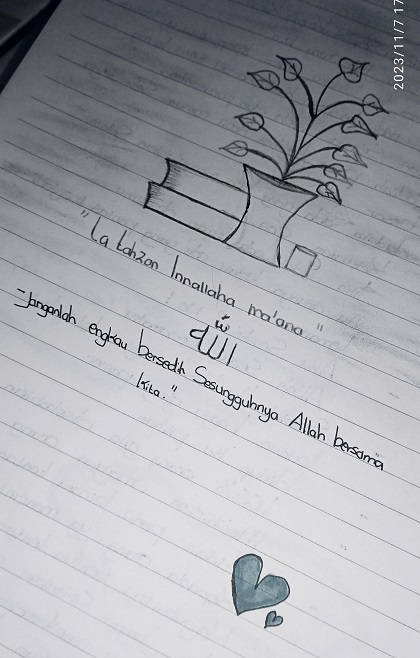 2023/11/7 17
"La tahzan Innallaha ma'ana"
الله
-Janganlah engkau bersedih Sesungguhnya Allah bersama
kita."